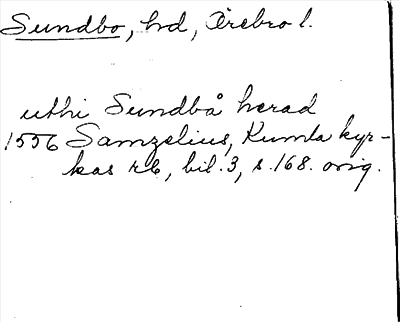 Sundbo, hd, Örebro l.
uthi Sundbå herad
1556 Samzelius, Kumla kyr-
kas rb, bil. 3, s. 168. orig.